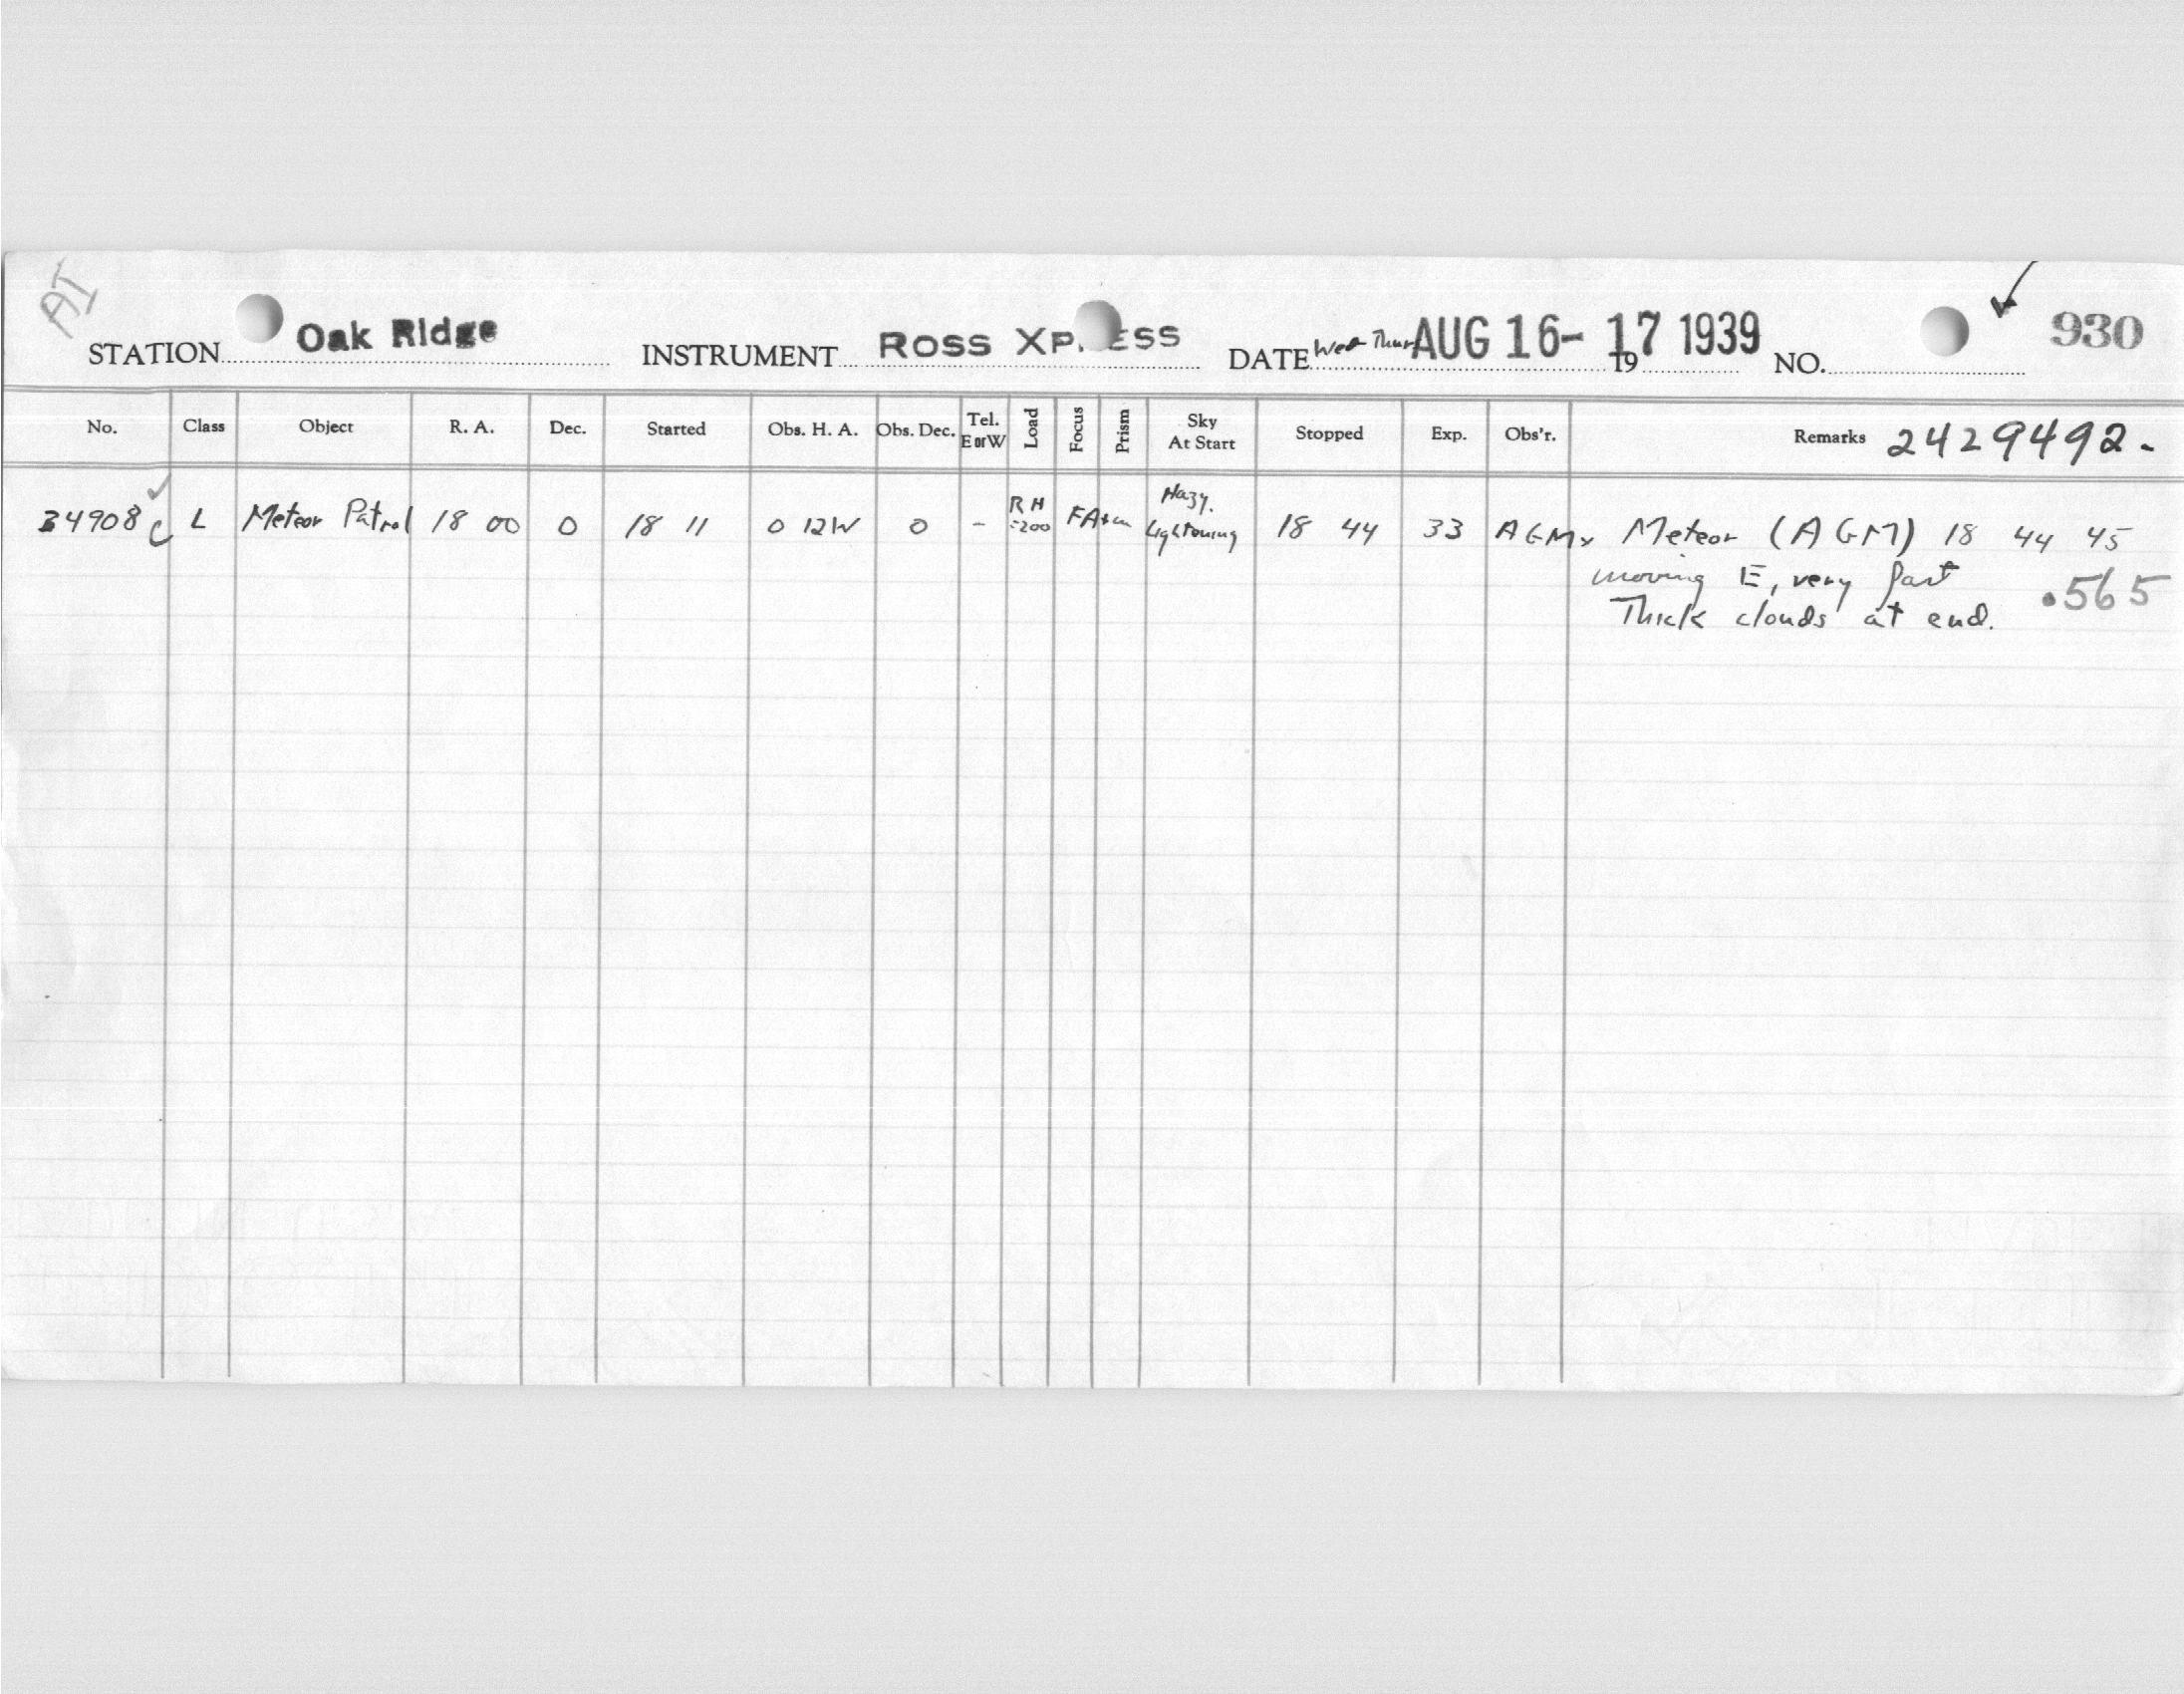 AI
STATION Oak Ridge INSTRUMENT ROSS XP ESS DATE Wed-Thur AUG 16-17 1939 19 NO. 930
No. Class Object R. A. Dec. Started Obs. H. A. Obs. Dec. Tel. E or W Load Focus Prism Sky At Start Stopped Exp. Obs'r. Remarks 2429492.
34908 L Meteor Patrol 18 00 0 18 11 0 12W 0 - RH =200 Hazy. Lightening 18 44 33 AGM Meteor (AGM) 18 44 45
moving E, very fast .565
Thick clouds at end.